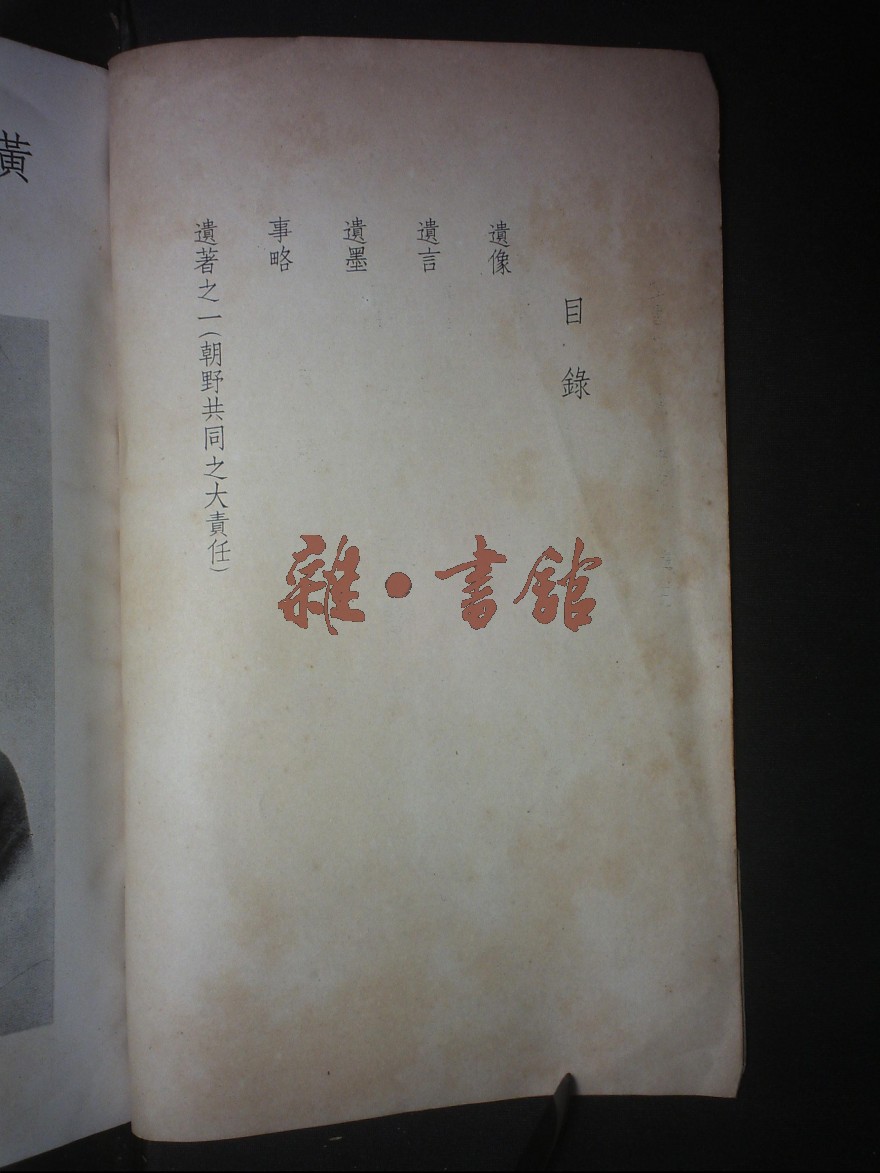 目錄
遺像
遺言
遺墨
事略
遺著之一(朝野共同之大責任)
雜·書館
黃